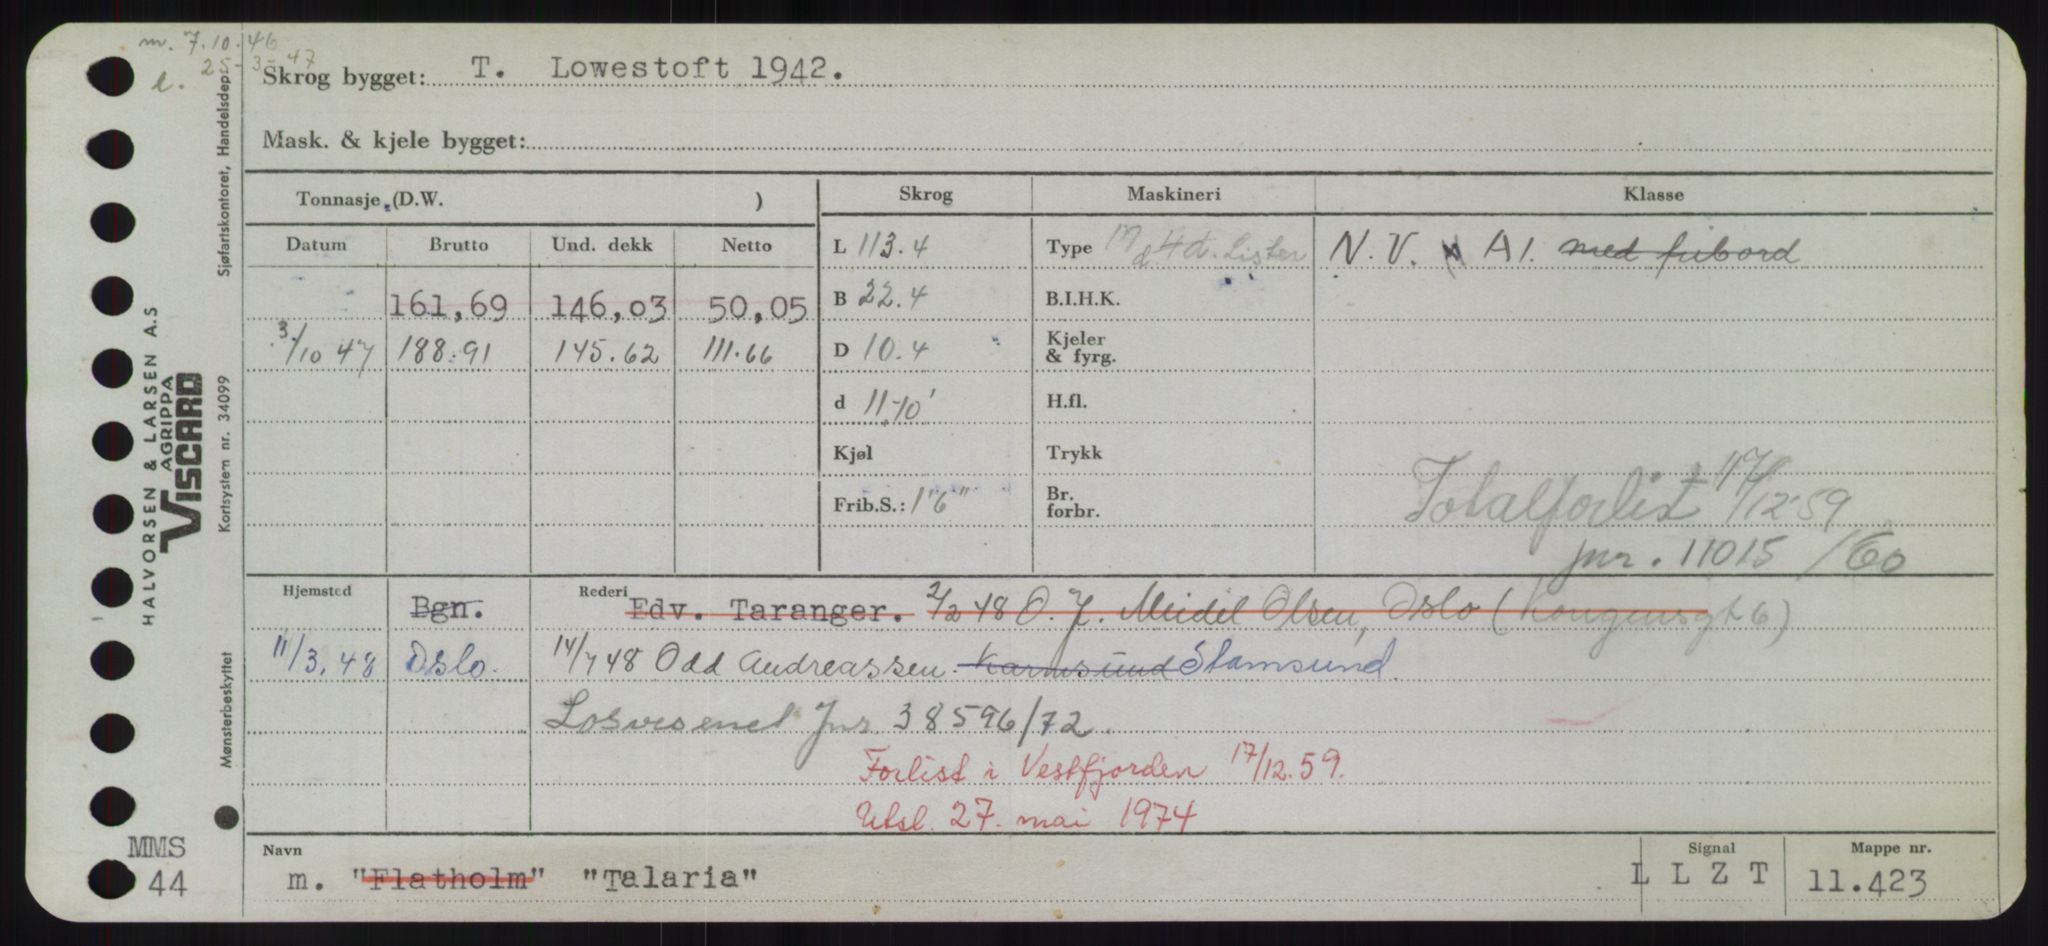 m. 7.10.46
l. 25-3-47
Skrog bygget: T. Lowestoft 1942.
Mask. & kjele bygget:
Tonnasje (D.W. )
Skrog
Maskineri
Klasse
Datum Brutto Und. dekk Netto
L 113.4
Type M 4 d. Lister
N.V. A1. med fribord
161,69 146,03 50,05
B 22.4
B.I.H.K.
3/10 47 188.91 145.62 111.66
D 10.4
Kjeler
& fyrg.
d 11-10'
H.fl.
Kjøl
Trykk
Frib.S.: 1'6"
Br.
forbr.
Totalforlist 17/12-59
jnr. 11015/60
Hjemsted Bgn. Rederi Edv. Taranger. 2/2 48 O. J. Meidel Olsen, Oslo (Kongensgt 6)
11/3.48 Oslo. 14/7 48 Odd Andreassen. Karmsund Stamsund.
Losvesenet Jnr. 38596/72.
Forlist i Vestfjorden 17/12.59.
Utsl. 27. mai 1974
Navn
m. "Flatholm" "Talaria"
Signal
L L Z T
Mappe nr.
11.423
MMS
44
HALVORSEN & LARSEN A.S
AGRIPPA
VISCARD
Sjøfartskontoret, Handelsdep.
Kortsystem nr. 34099
Mønsterbeskyttet